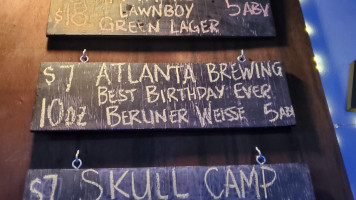 $18 LAWNBOY 5ABV
GREEN LAGER
$7 ATLANTA BREWING
BEST BIRTHDAY EVER
10oz BERLINER WEISSE 5ABV
$7 SKULL CAMP